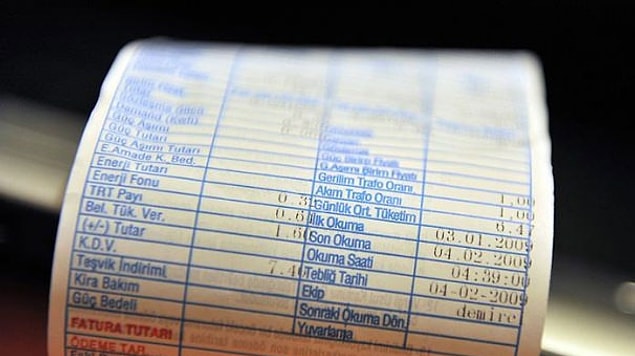 Tutar
Sözleşme Gücü
Demand (Kwh)
Güç Aşımı
Güç Tutarı
E.Amade K. Bed.
Enerji Tutarı
Enerji Fonu
TRT Payı
Bel. Tük. Ver.
(+/-) Tutar
K.D.V.
Teşvik İndirimi
Kira Bakım
Güç Bedeli
FATURA TUTARI
ÖDEME TAR.
0.6
1.6
7.4
Güç Birim Fiyatı
G.Aşımı Birim Fiyatı
Gerilim Trafo Oranı
Akım Trafo Oranı 1.00
Günlük Ort. Tüketim 1.00
İlk Okuma
Son Okuma 03.01.2009
Okuma Saati 04.02.2009
Tebliğ Tarihi 04:39:00
Ekip 04-02-2009
Sonraki Okuma Dön. demire
Yuvarlama